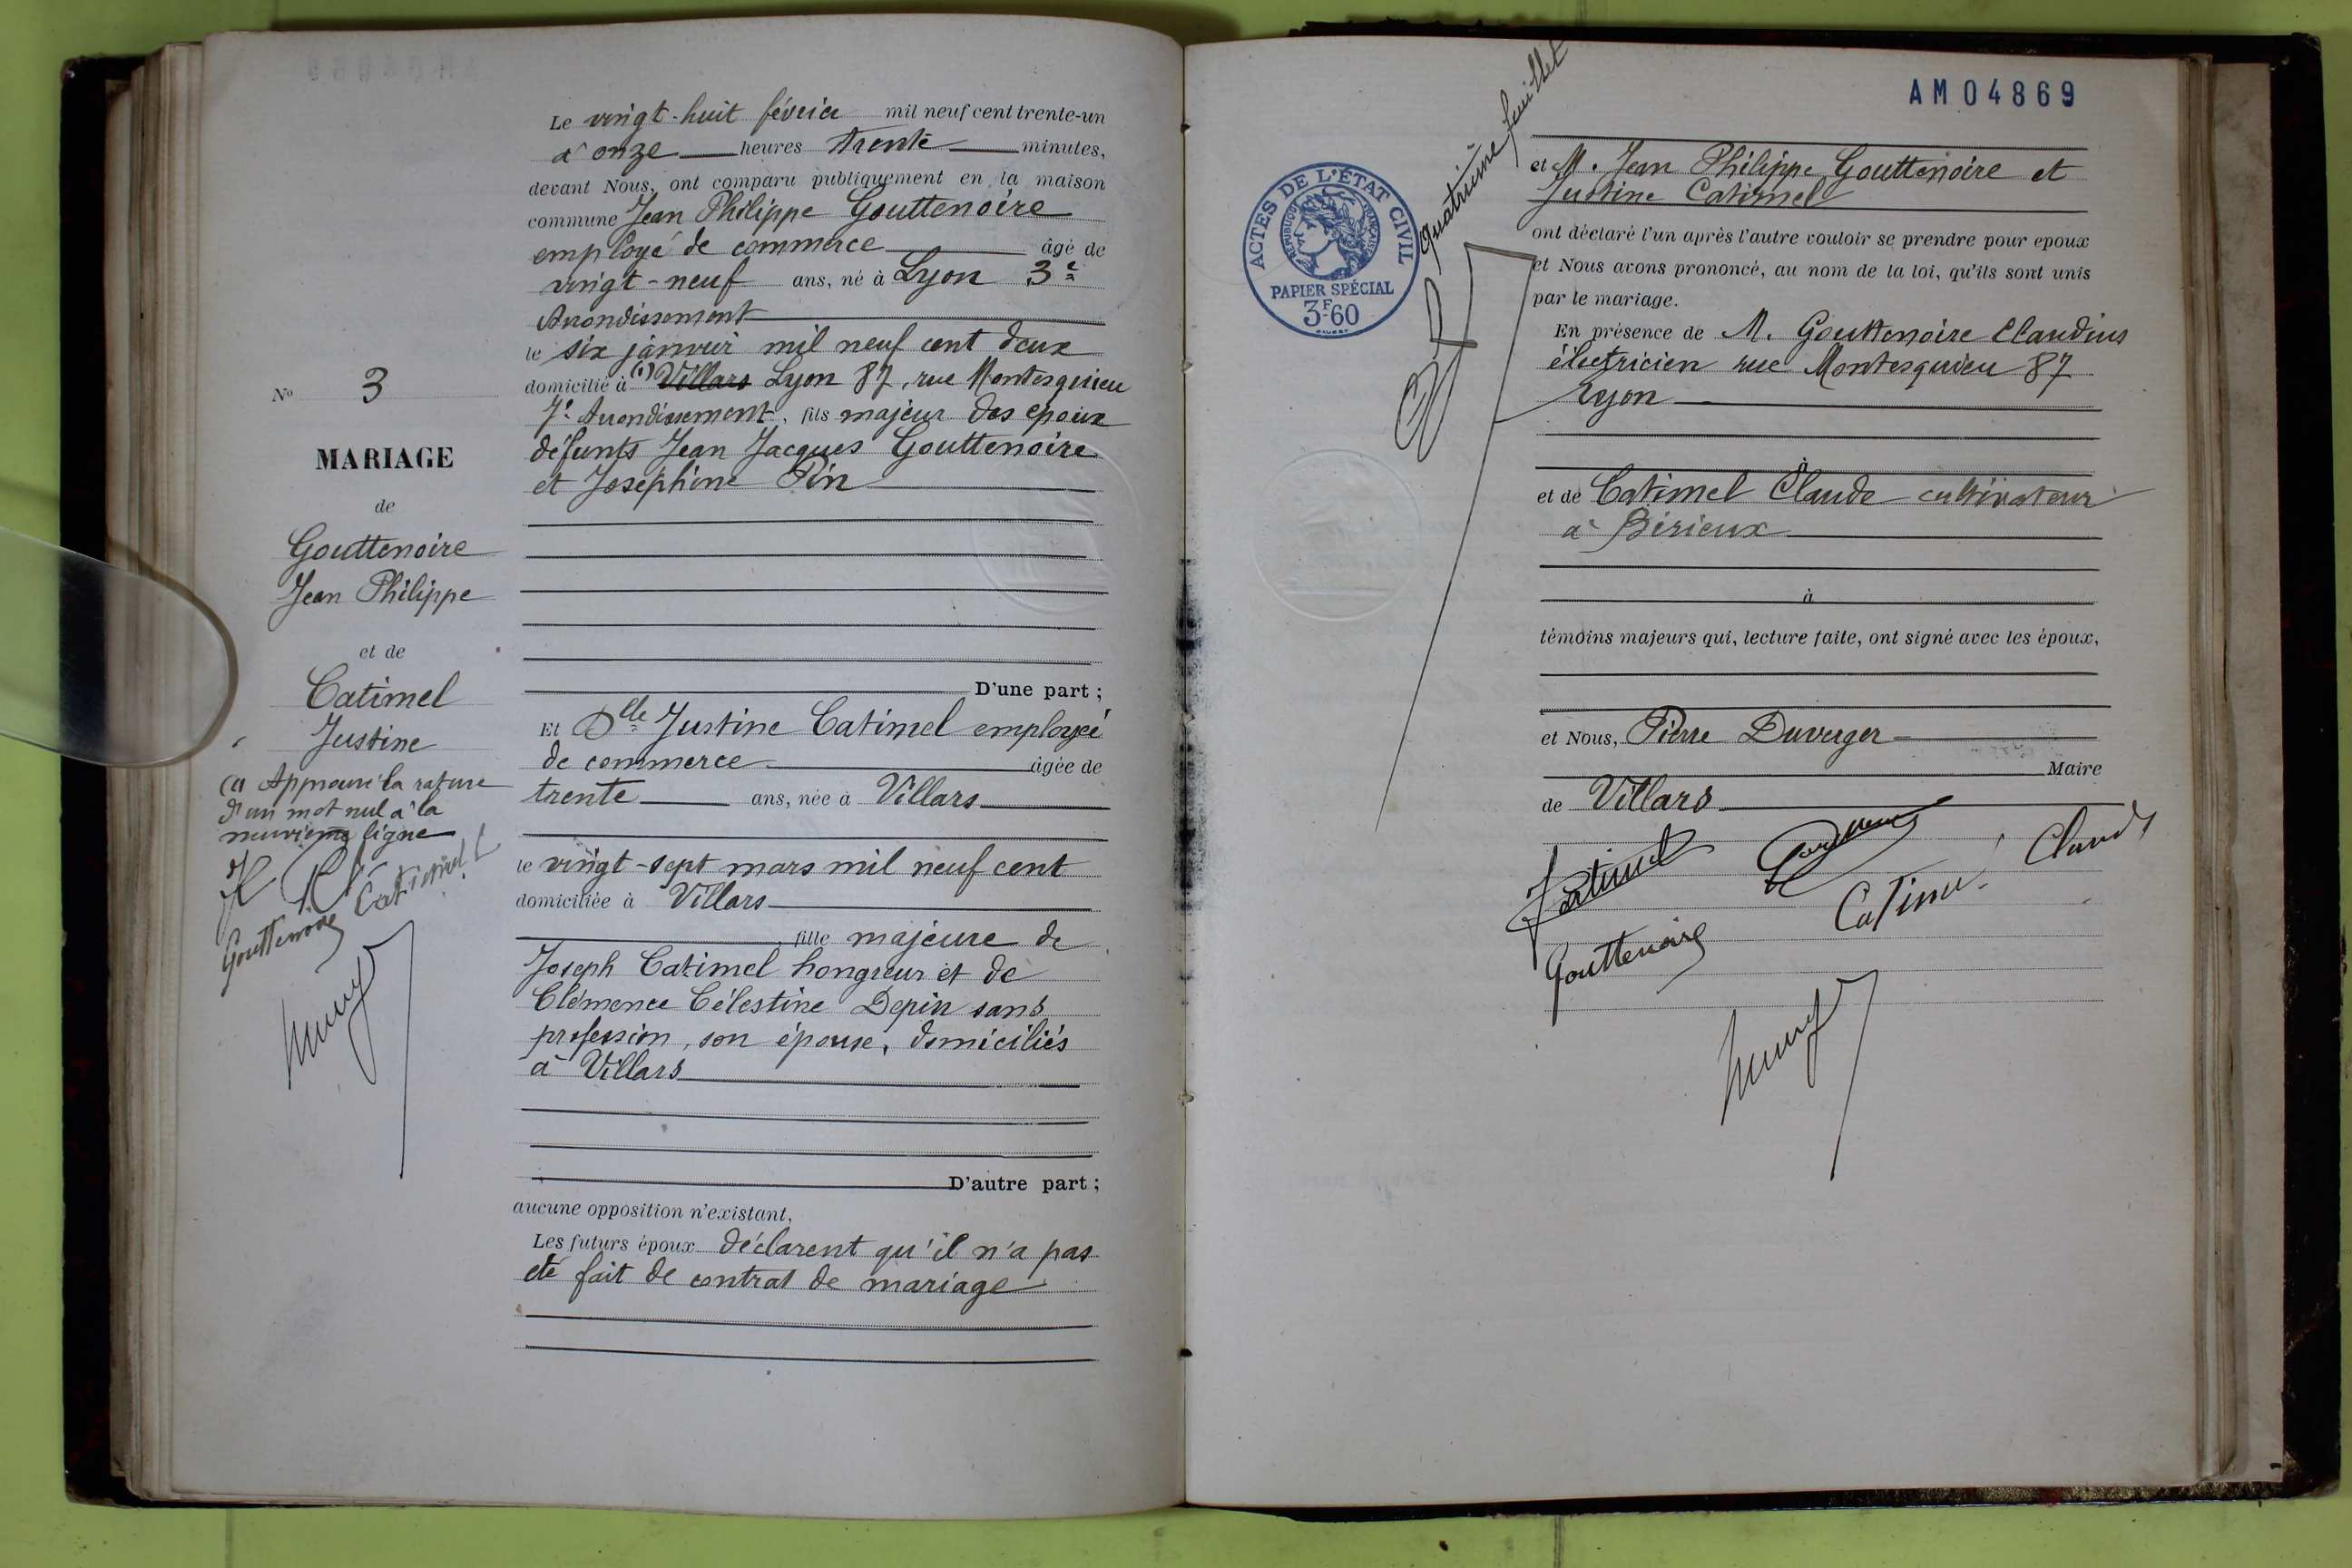 N° 3
MARIAGE
de
Gouttenoire
Jean Philippe
et de
Catimel
Justine
(1) Approuvé la rature
d'un mot nul à la
neuvième ligne
Gouttenoire Catimel
Le vingt-huit février mil neuf cent trente-un
à onze heures trente minutes,
devant Nous, ont comparu publiquement en la maison
commune Jean Philippe Gouttenoire
employé de commerce âgé de
vingt-neuf ans, né à Lyon 3e
Arrondissement
le six janvier mil neuf cent deux
domicilié à (1) Villars Lyon 87, rue Montesquieu
7e Arrondissement, fils majeur des époux
défunts Jean Jacques Gouttenoire
et Joséphine Pin
D'une part ;
Et Dlle Justine Catimel employée
de commerce âgée de
trente ans, née à Villars
le vingt-sept mars mil neuf cent
domiciliée à Villars
fille majeure de
Joseph Catimel hongreur et de
Clémence Célestine Depin sans
profession, son épouse, domiciliés
à Villars
D'autre part ;
aucune opposition n'existant,
Les futurs époux déclarent qu'il n'a pas
été fait de contrat de mariage
AM04869
quatrième feuillet
ACTES DE L'ÉTAT CIVIL
RÉPUBLIQUE FRANÇAISE
PAPIER SPÉCIAL
3F60
et M. Jean Philippe Gouttenoire et
Justine Catimel
ont déclaré l'un après l'autre vouloir se prendre pour epoux
et Nous avons prononcé, au nom de la loi, qu'ils sont unis
par le mariage.
En présence de M. Gouttenoire Claudius
électricien rue Montesquieu 87
Lyon
à
et de Catimel Claude cultivateur
à Birieux
à
témoins majeurs qui, lecture faite, ont signé avec les époux,
et Nous, Pierre Duverger
Maire
de Villars
J Catimel
Gouttenoire
Catimel Claude